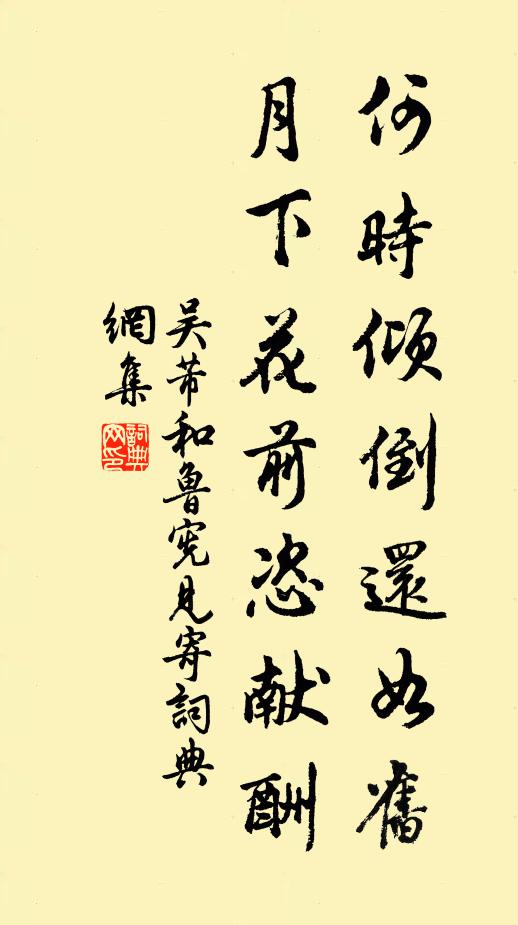 何時傾倒還如舊
月下花前恣献酬
吴芾和魯宪見寄詞典
網集
詞典
网印